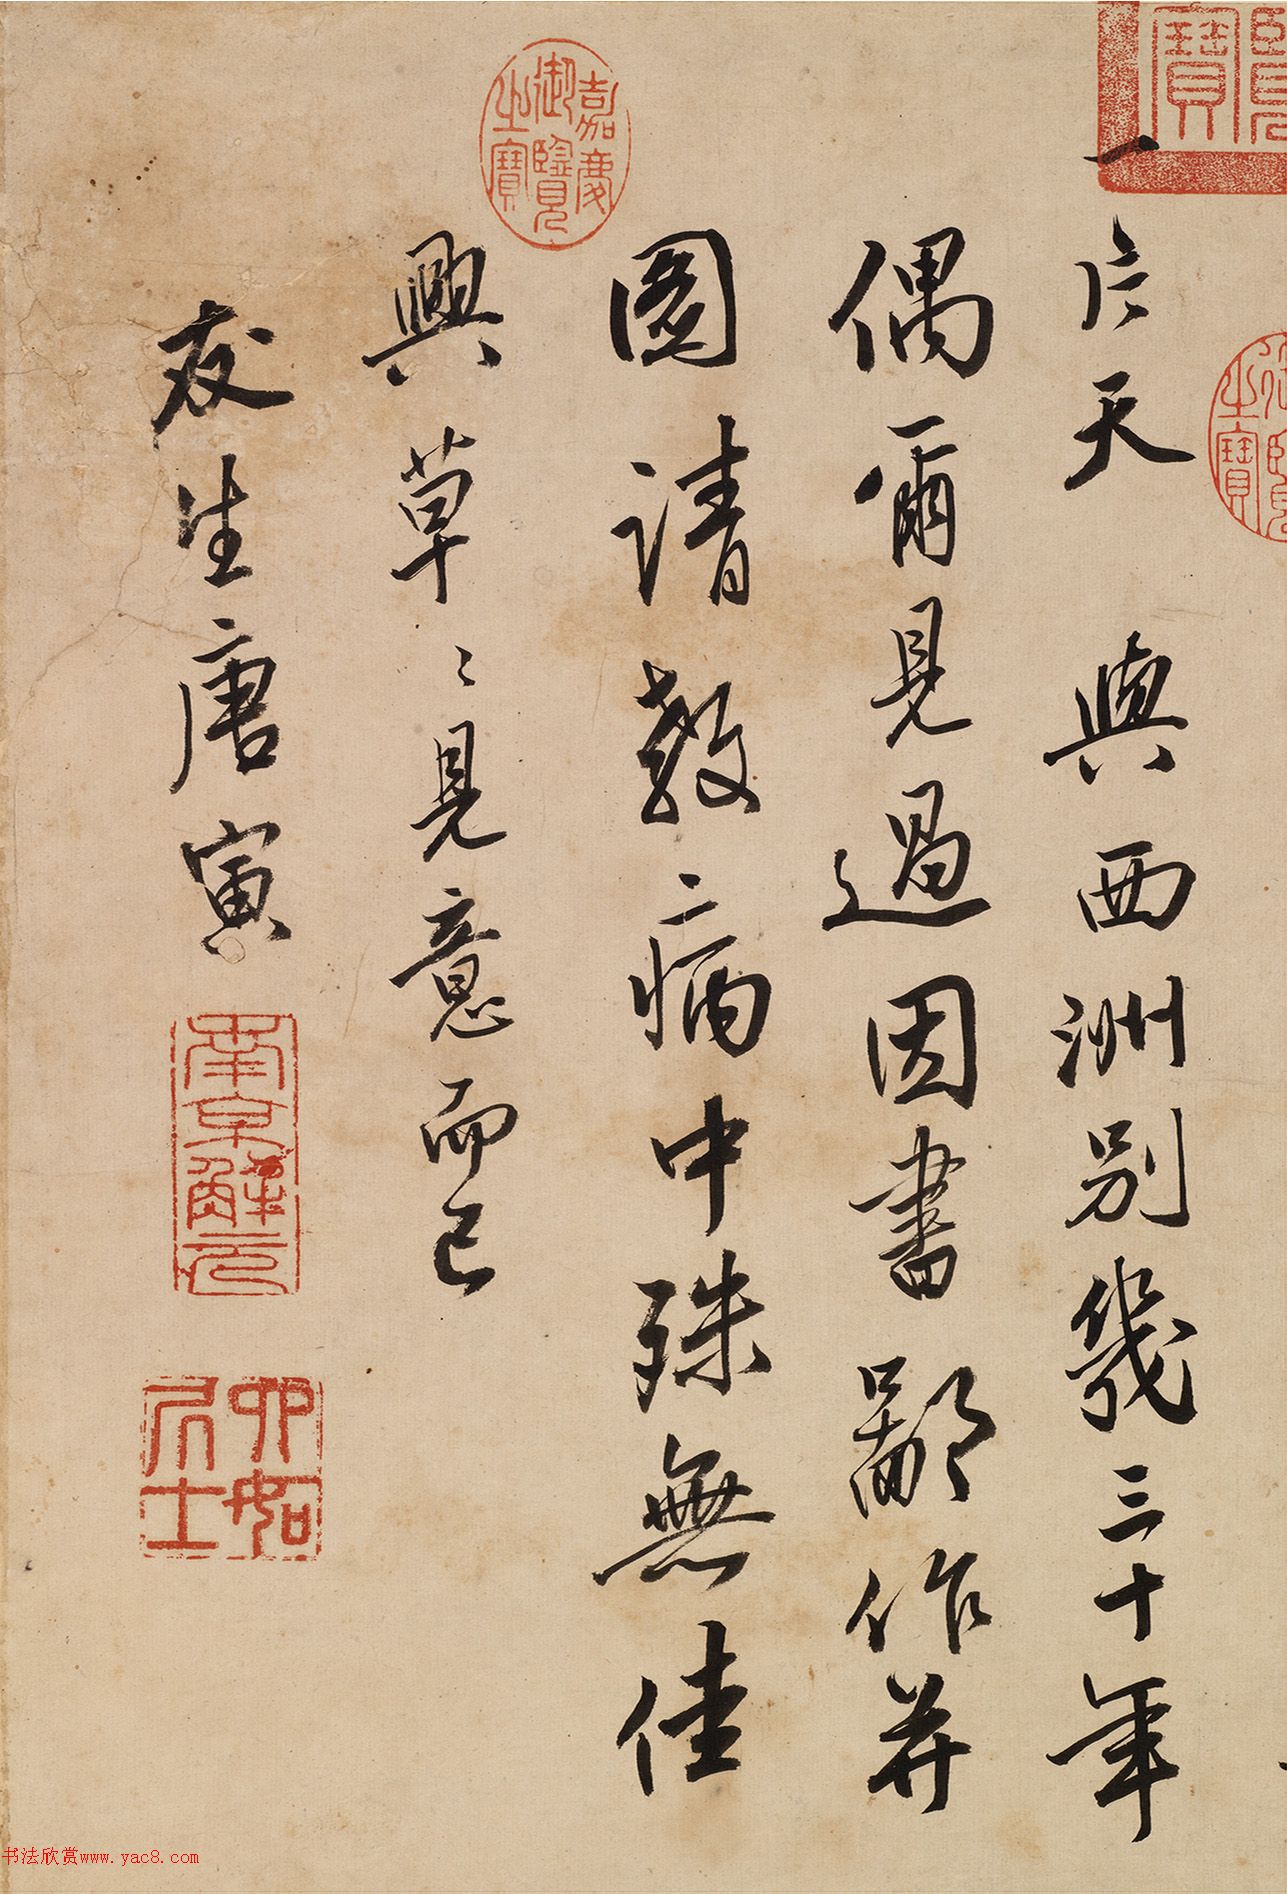 一片天 與西洲別幾三十年
偶爾見過因書鄙作并
圖請教病中殊無佳
興草〻見意而已
友生唐寅
嘉慶御覽之寶
南京解元
六如居士
之寶
覽寶
书法欣赏www.yac8.com